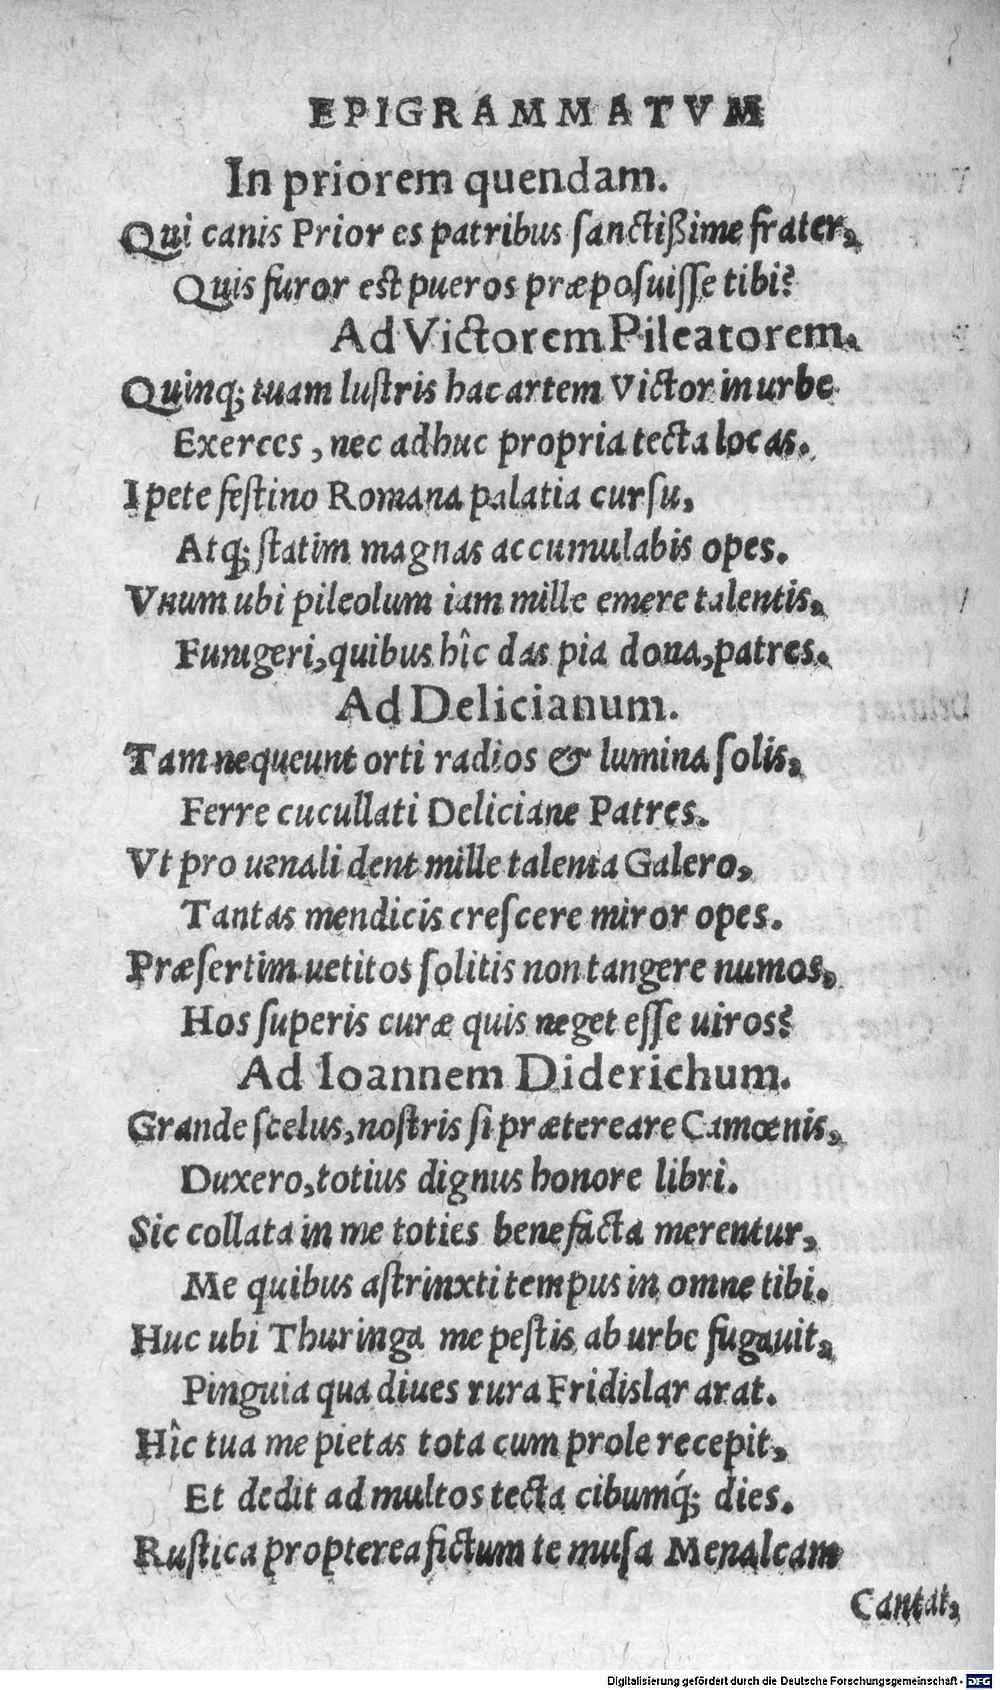 EPIGRAMMATVM
In priorem quendam.
Qui canis Prior es patribus sanctißime frater,
Quis furor est pueros præposuisse tibi?
Ad Victorem Pileatorem.
Quinq; tuam lustris hac artem Victor in urbe
Exerces, nec adhuc propria tecta locas.
I pete festino Romana palatia cursu,
Atq; statim magnas accumulabis opes.
Vnum ubi pileolum iam mille emere talentis,
Funigeri, quibus hîc das pia dona, patres.
Ad Delicianum.
Tam nequeunt orti radios & lumina solis,
Ferre cucullati Deliciane Patres.
Vt pro uenali dent mille talenta Galero,
Tantas mendicis crescere miror opes.
Præsertim uetitos solitis non tangere numos,
Hos superis curæ quis neget esse uiros?
Ad Ioannem Diderichum.
Grande scelus, nostris si prætereare Camœnis,
Duxero, totius dignus honore libri.
Sic collata in me toties benefacta merentur,
Me quibus astrinxti tempus in omne tibi.
Huc ubi Thuringa me pestis ab urbe fugauit,
Pinguia qua diues rura Fridislar arat.
Hîc tua me pietas tota cum prole recepit,
Et dedit ad multos tecta cibumq́; dies.
Rustica propterea fictum te musa Menalcam
Cantat,
Digitalisierung gefördert durch die Deutsche Forschungsgemeinschaft - DFG